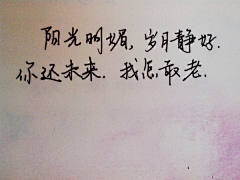 阳光明媚,岁月静好.
你还未来.我怎敢老.